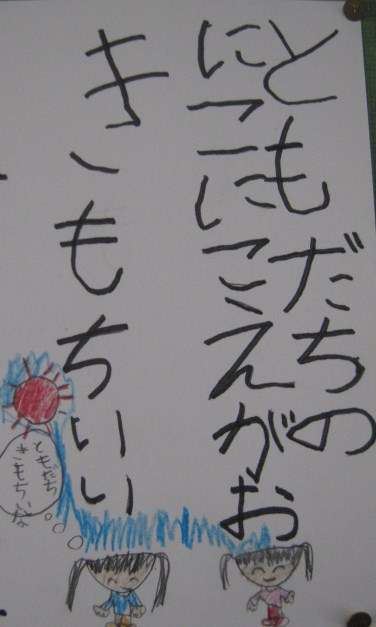 ともだちの
にこにこえがお
きもちいい
ともだち
きもちいいな